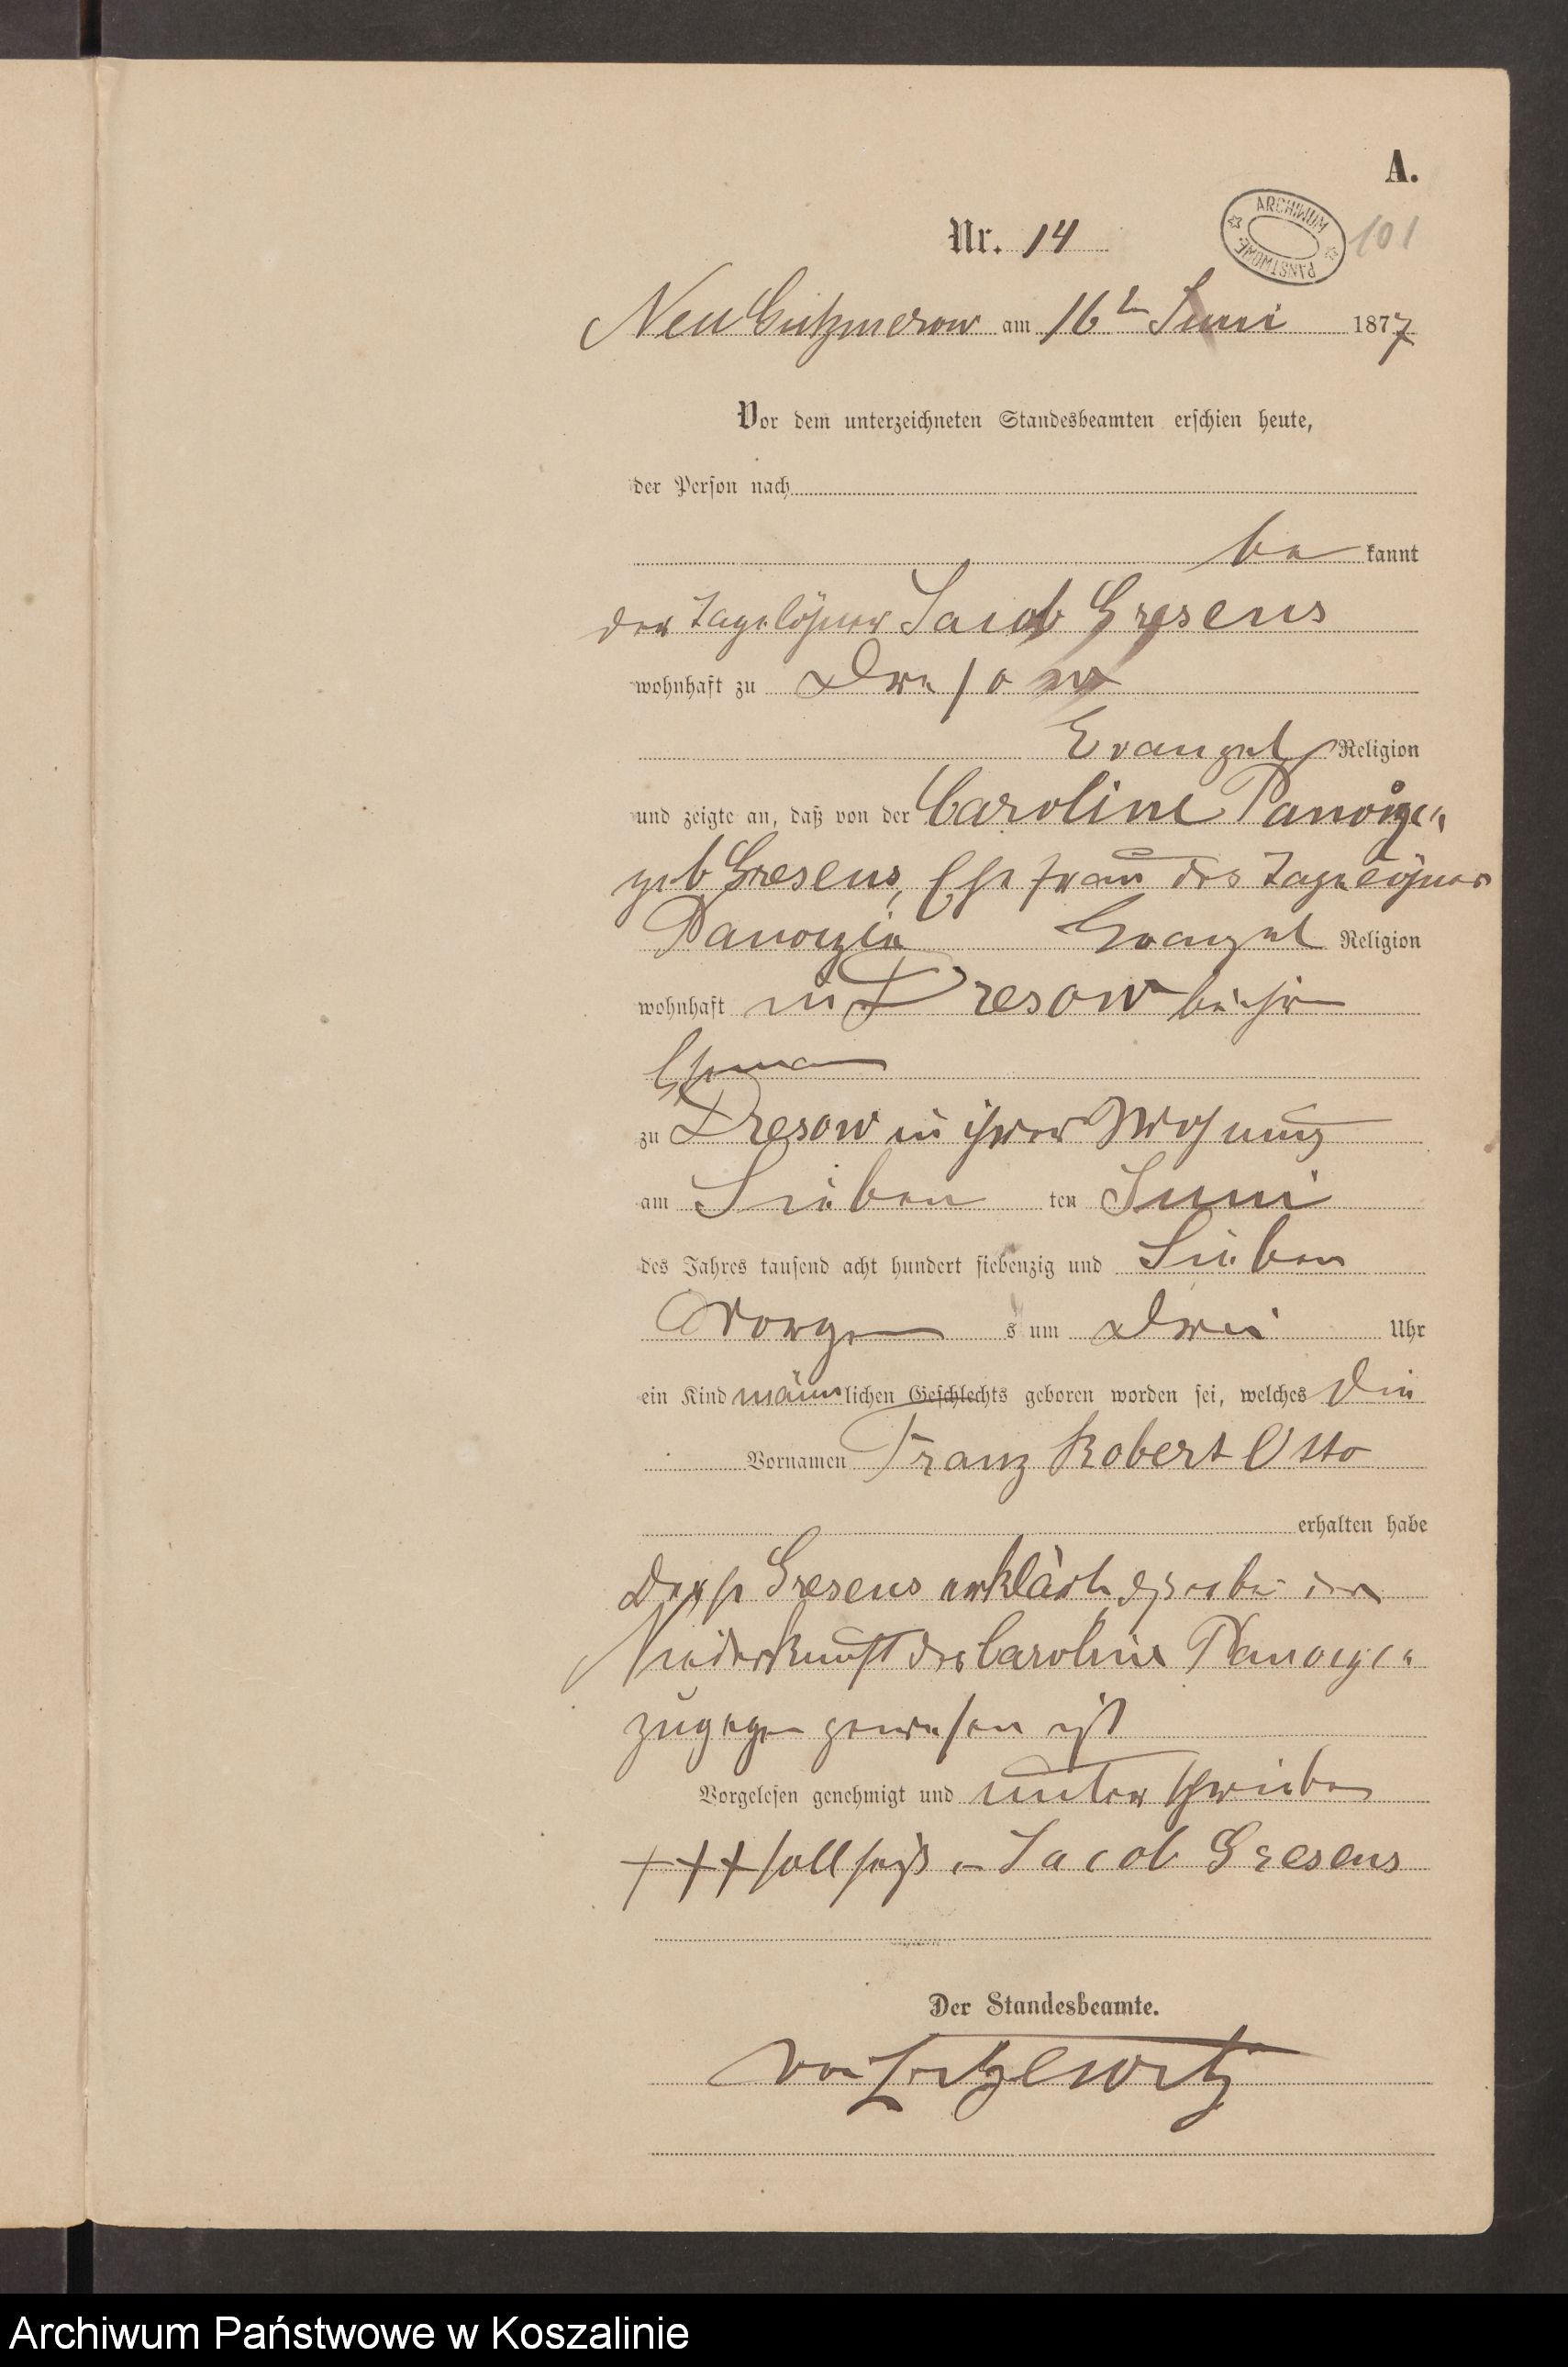 A.
Nr. 14
ARCHIWUM PAŃSTWOWE
101
Neu Gutzmerow am 16ten Juni 1877
Vor dem unterzeichneten Standesbeamten erschien heute,
der Person nach
be kannt
der Tagelöhner Jacob Gresens
wohnhaft zu Dresow
Evangel Religion
und zeigte an, daß von der Caroline
geb Gresens, Ehefrau des Tagelöhner
Evangel Religion
wohnhaft in Dresow bei ihr
Ehmann
zu Dresow in ihrer Wohnung
am Sieben ten Juni
des Jahres tausend acht hundert siebenzig und Sieben
Morgen s um Drei Uhr
ein Kind männlichen Geschlechts geboren worden sei, welches Die
Vornamen Franz Robert Otto
erhalten habe
Gresens erklärte der
Niederkunft der Caroline
zugegen gewesen ist
Vorgelesen genehmigt und unterschrieben
+++ soll Jacob Gresens
Der Standesbeamte.
von Zitzewitz
Archiwum Państwowe w Koszalinie